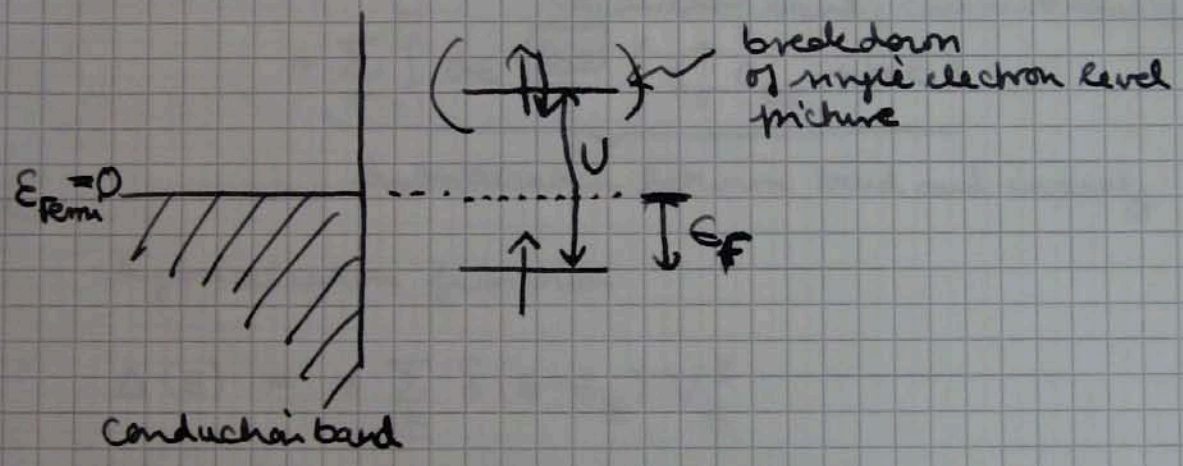 breakdown
of single electron level
picture
U
ε_Fermi = 0
ε_F
conduction band